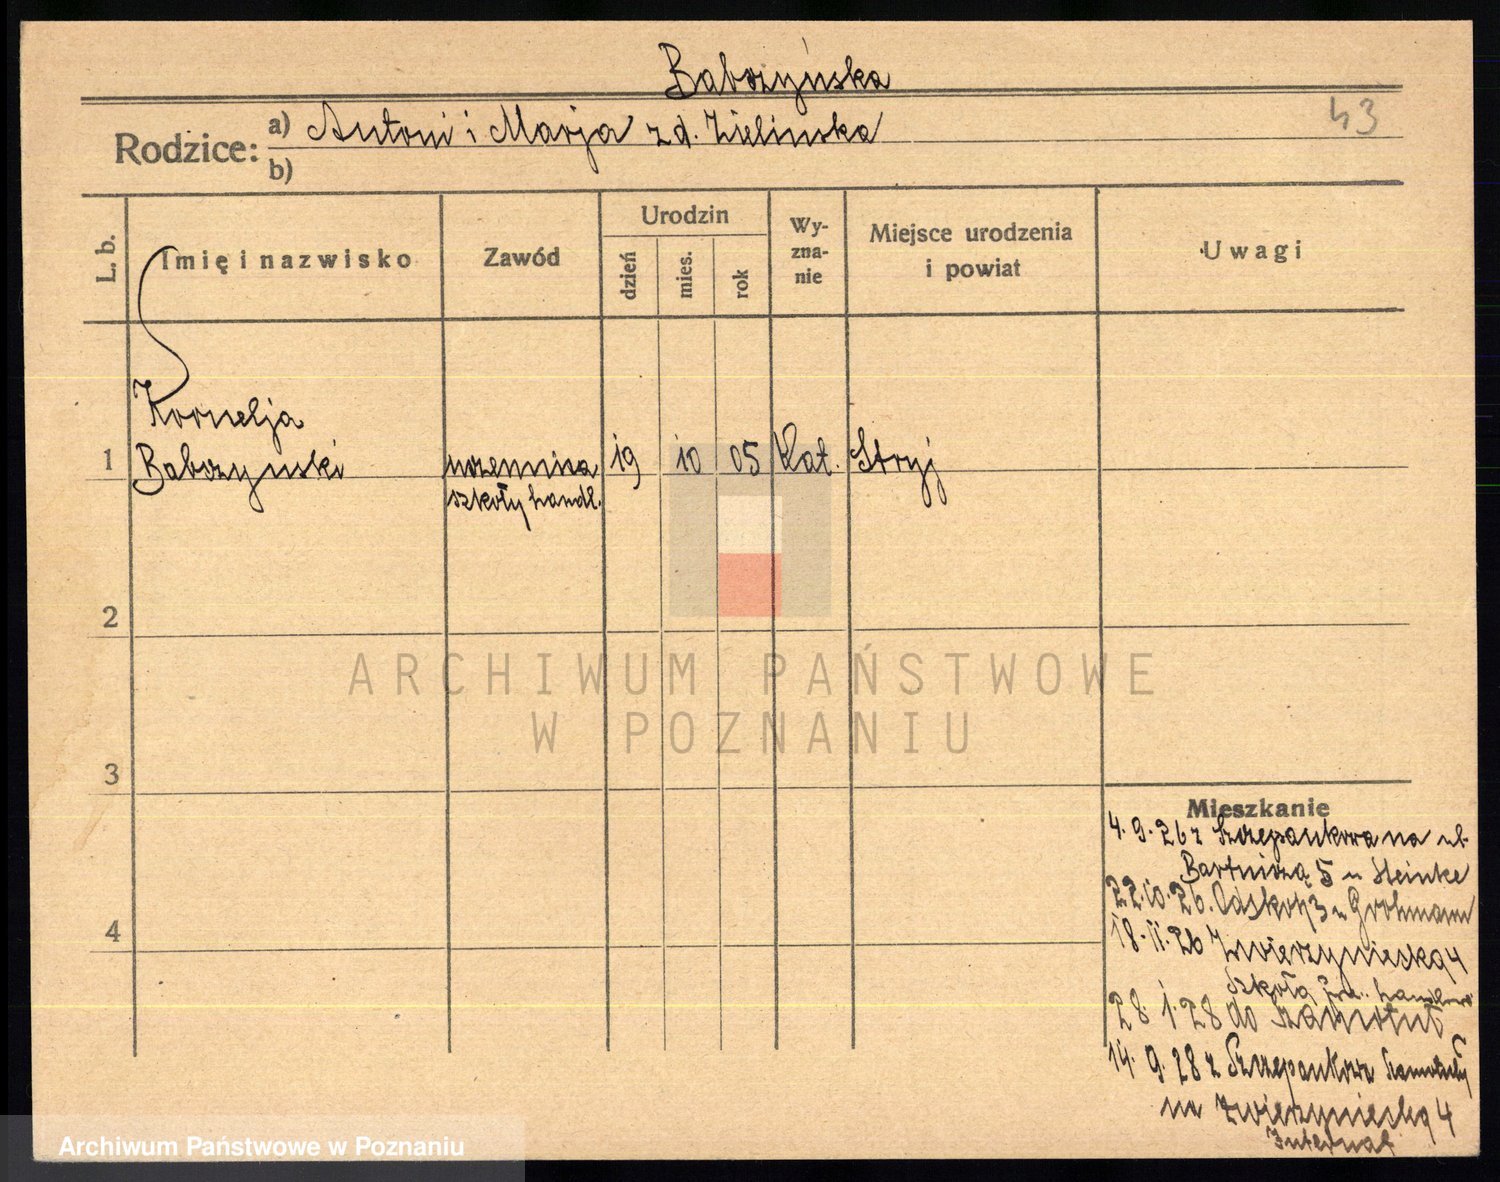 Babrzyńska
Rodzice: a) Antoni i Marja z d. Zielinska
43
b)
L. b.
Imię i nazwisko
Zawód
Urodzin
dzień
mies.
rok
Wy-
zna-
nie
Miejsce urodzenia
i powiat
Uwagi
Kornelja
1 Babrzynski uczennica 19 10 05 Kat. Stryj
szkoły handl.
2
ARCHIWUM PAŃSTWOWE
W POZNANIU
3
Mieszkanie
4. 9. 26 z Szczepankowa na ul.
5 u Steinke
22. 10. 26. 3 u Grohmann
4
18. 11. 26 Zwierzyniecka 4
Szkoła
28 1. 28 do Szamotuł
14. 9. 28 z Szczepankowa Szamotuły
na Zwierzyniecką 4
Internat
Archiwum Państwowe w Poznaniu